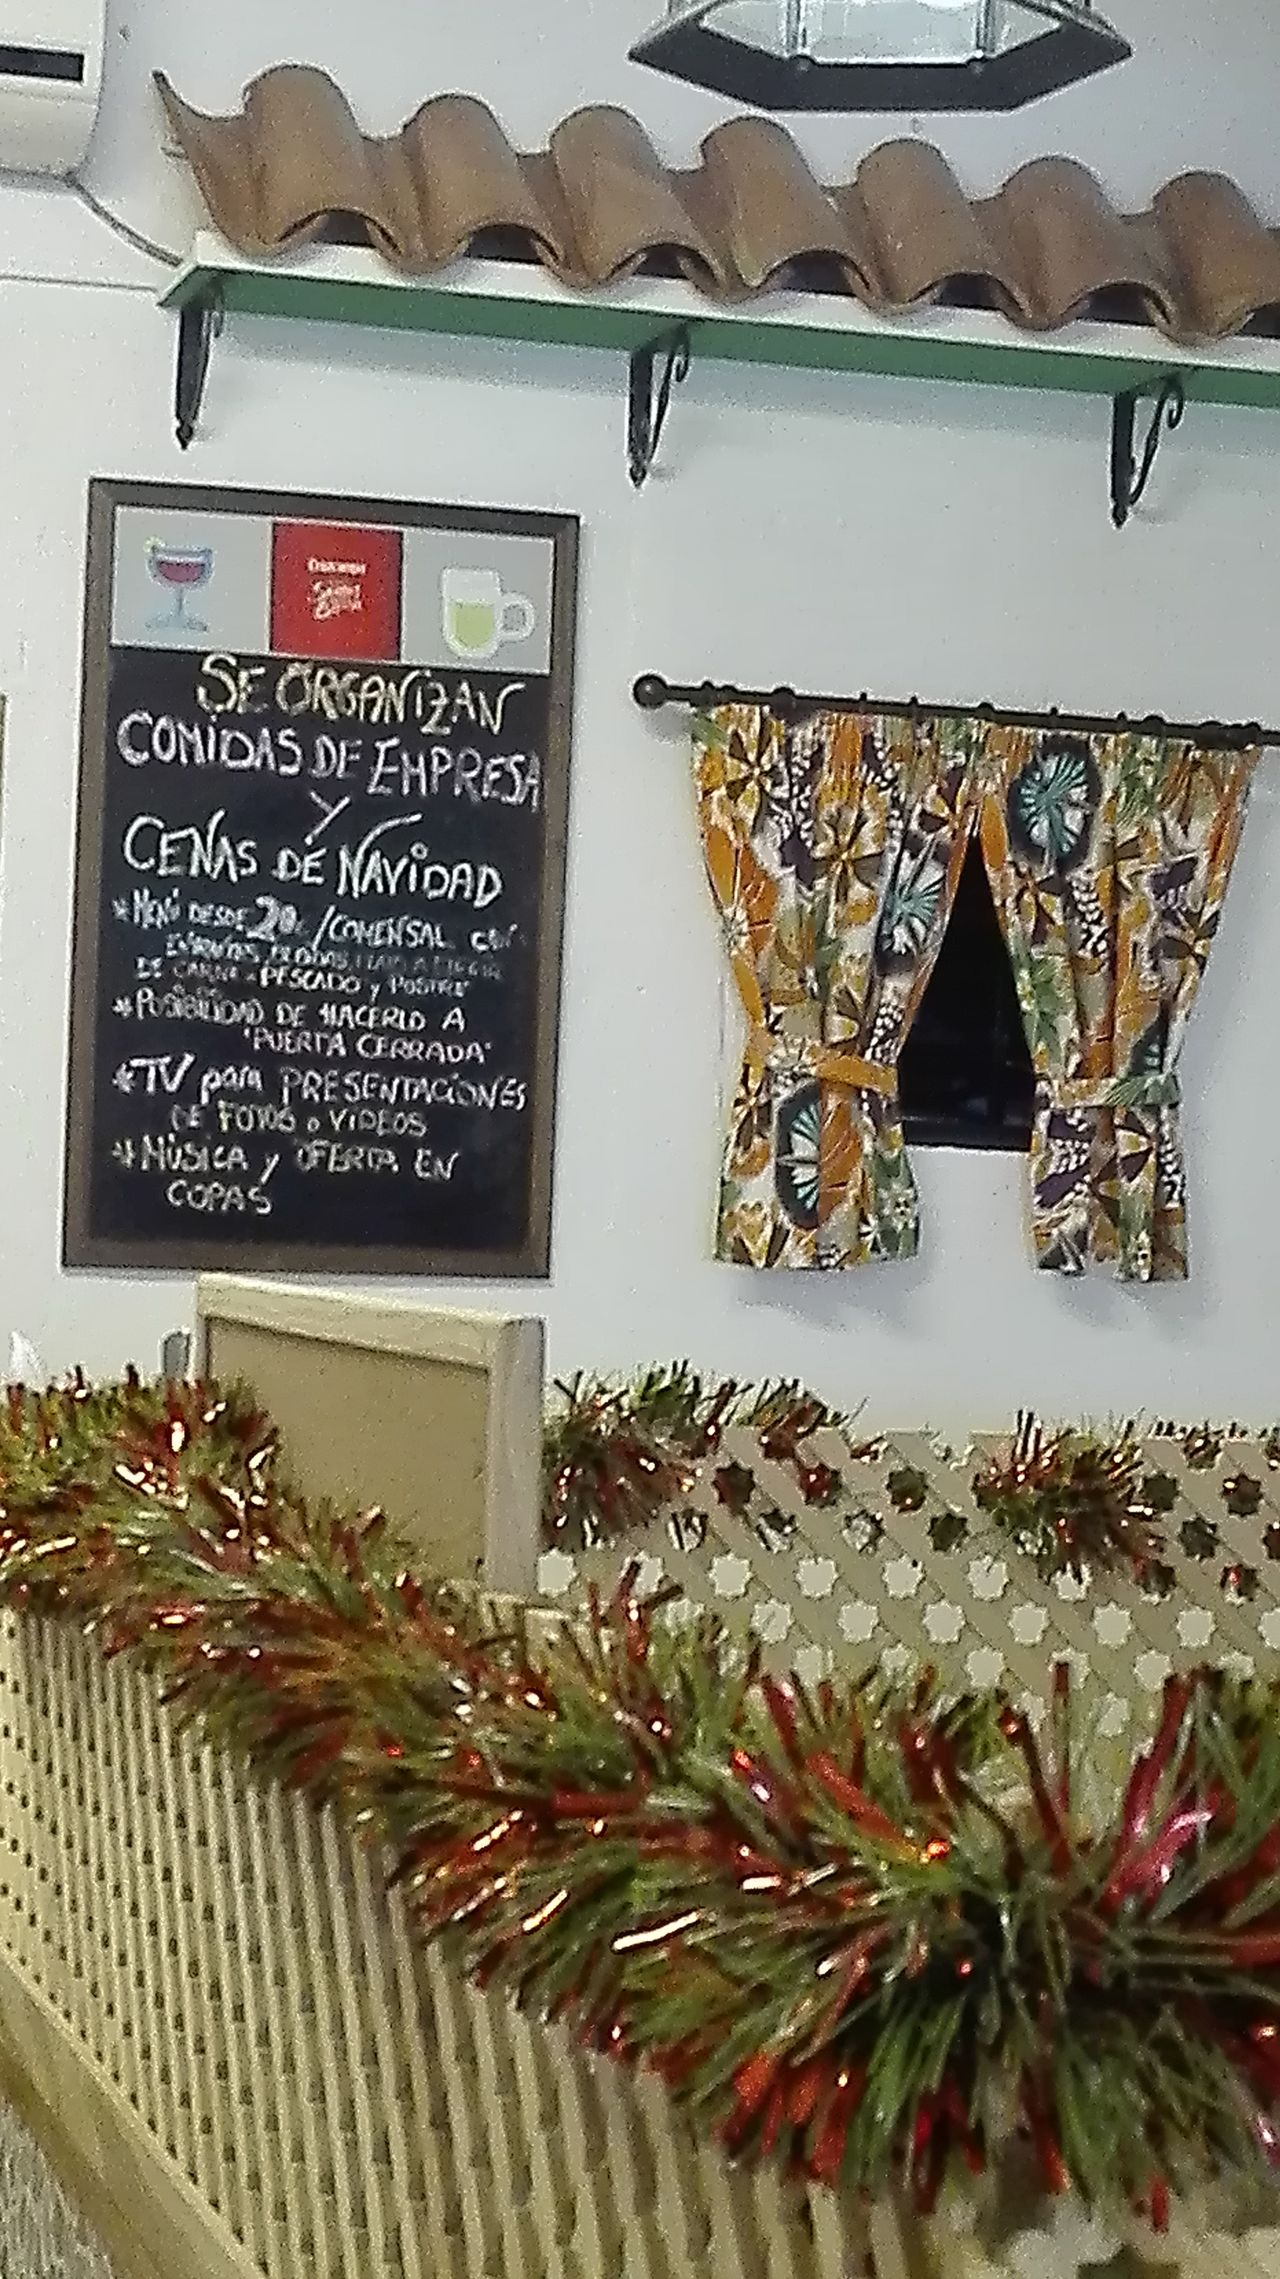 SE ORGANIZAN
COMIDAS DE EMPRESA
Y
CENAS DE NAVIDAD
*MENÚ DESDE 20 /COMENSAL CON
DE CARNE o PESCADO y POSTRE
*POSIBILIDAD DE HACERLO A
"PUERTA CERRADA"
*TV para PRESENTACIONES
DE FOTOS o VIDEOS
*MÚSICA y OFERTA EN
COPAS